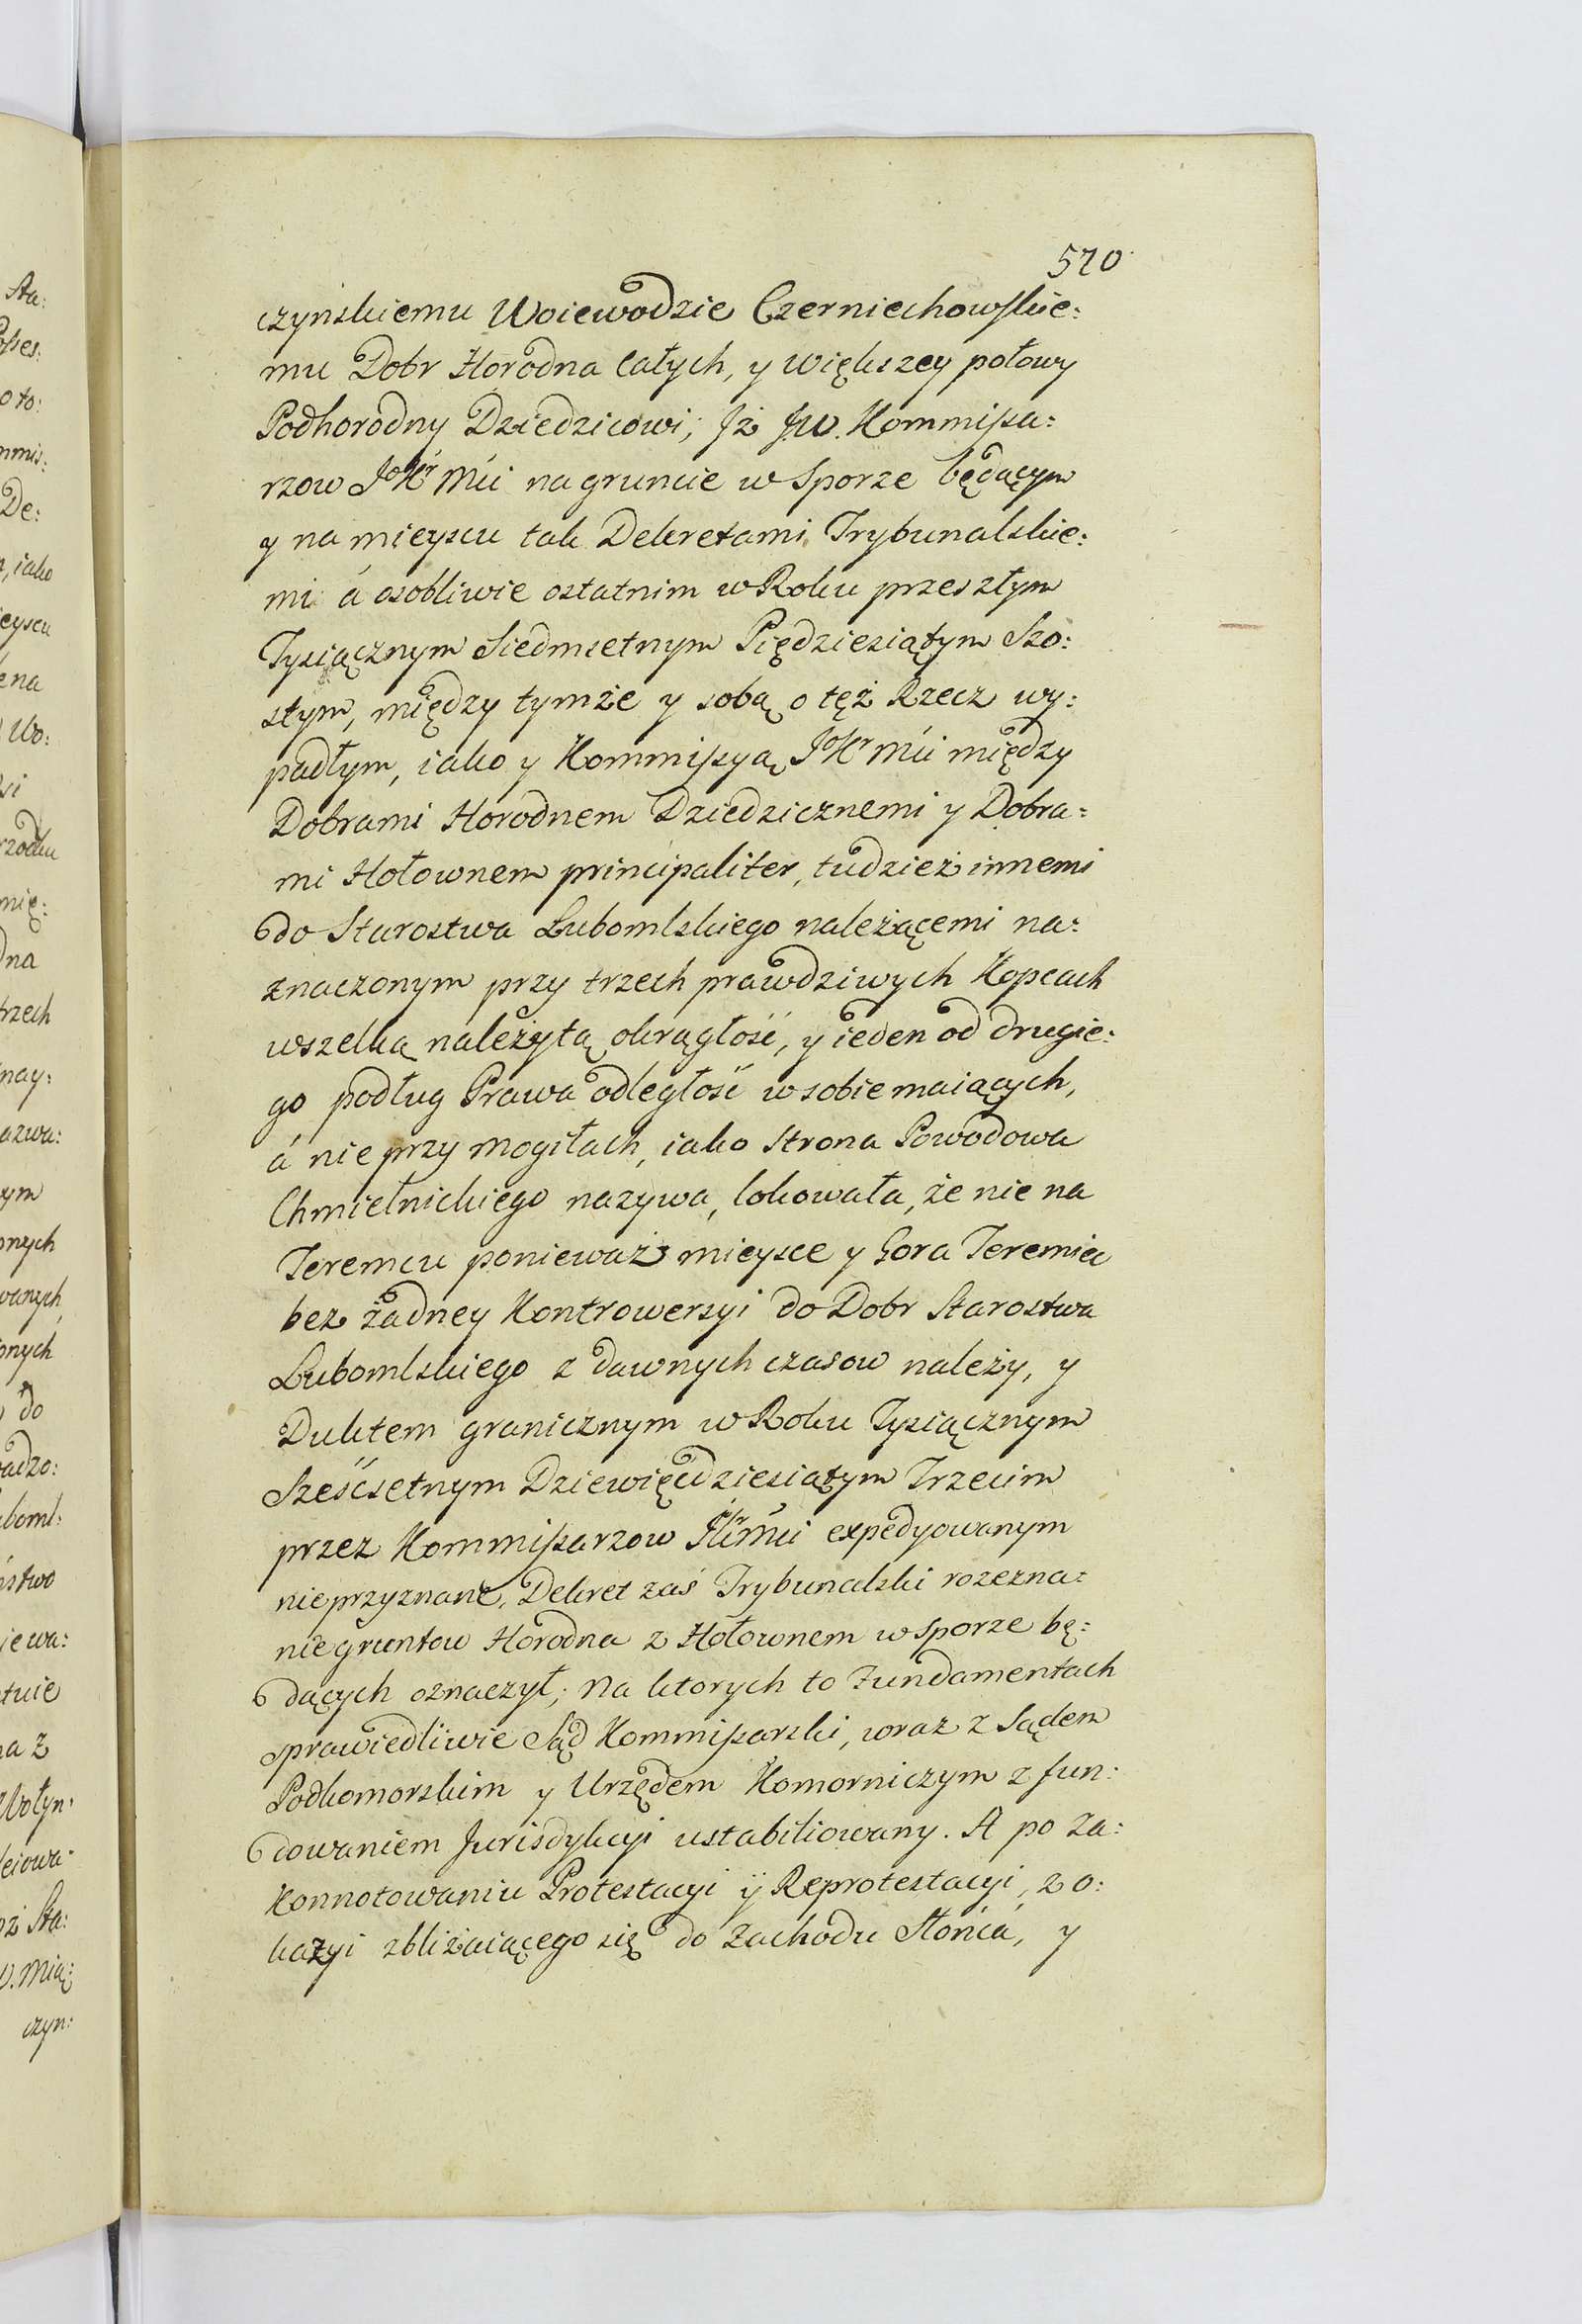 520
czyńskiemu Woiewodzie Czerniechowskie:
mu Dobr Horodna całych, y większey połowy
Podhorodny Dziedzicowi; Jż JW. Kommissa:
rzow JoKr Mći na gruncie w Sporze będącym
y na mieyscu tak Dekretami Trybunalskie:
mi á osobliwie ostatnim w Roku przeszłym
Tysiącznym Siedmsetnym Pięćdziesiątym Szo:
stym, między tymże y sobą o tęż Rzecz wy:
padłym, iako y Kommissyą JoKr Mći między
Dobrami Horodnem Dziedzicznemi y Dobra:
mi Hołownem principaliter, tudzież innemi
do Starostwa Lubomlskiego należącemi na:
znaczonym przy trzech prawdziwych Kopcach
wszelką należytą okrągłość, y ieden od drugie:
go podług Prawa odległość w sobie maiących,
á nie przy Mogiłach, iako Strona Powodowa
Chmielnickiego nazywa, lokowała, że nie na
Teremcu ponieważ mieysce y Gora Teremiec
bez żadney Kontrowersyi do Dobr Starostwa
Lubomlskiego z dawnych czasow należy, y
Duktem granicznym w Roku Tysiącznym
Sześćsetnym Dziewięćdziesiątym Trzecim
przez Kommissarzow JKr Mći expedyowanym
nie przyznane, Dekret zaś Trybunalski rozezna:
nie gruntow Horodna z Hołownem w sporze bę:
dących oznaczył; Na ktorych to Fundamentach
sprawiedliwie Sąd Kommissarski, wraz z Sądem
Podkomorskim y Urzędem Komorniczym z fun:
dowaniem Jurisdykcyi ustabiliowany. A po Za:
konnotowaniu Protestacyi ÿ Reprotestacyi, z o:
kazyi zbliżaiącego się do Zachodu Słońca, y